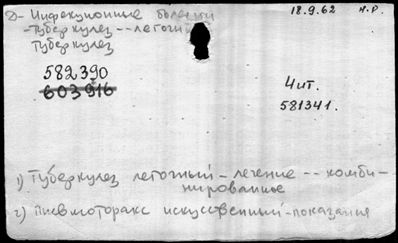 Д- Инфекционные болезни
18.9.62 Н.Р.
-Туберкулез -- легочный
Туберкулез
582390
603916
Чит.
581341.
1) Туберкулез легочный - лечение -- комби-
нированные
2) Пневмоторакс искусственный - показания